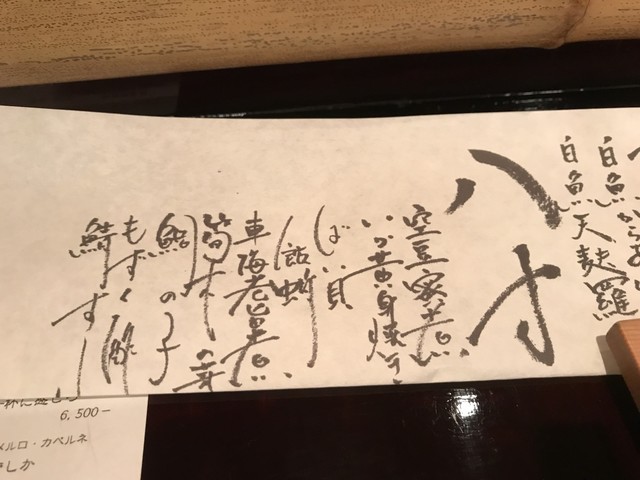 白魚からあげ
白魚天麩羅
八寸
空豆蜜煮
いか黄身焼き
ばい貝
詰蛤
車海老旨煮
筍木の芽
鯛の子
もずく酢
鯖すし
6,500−
メルロ・カベルネ
しか